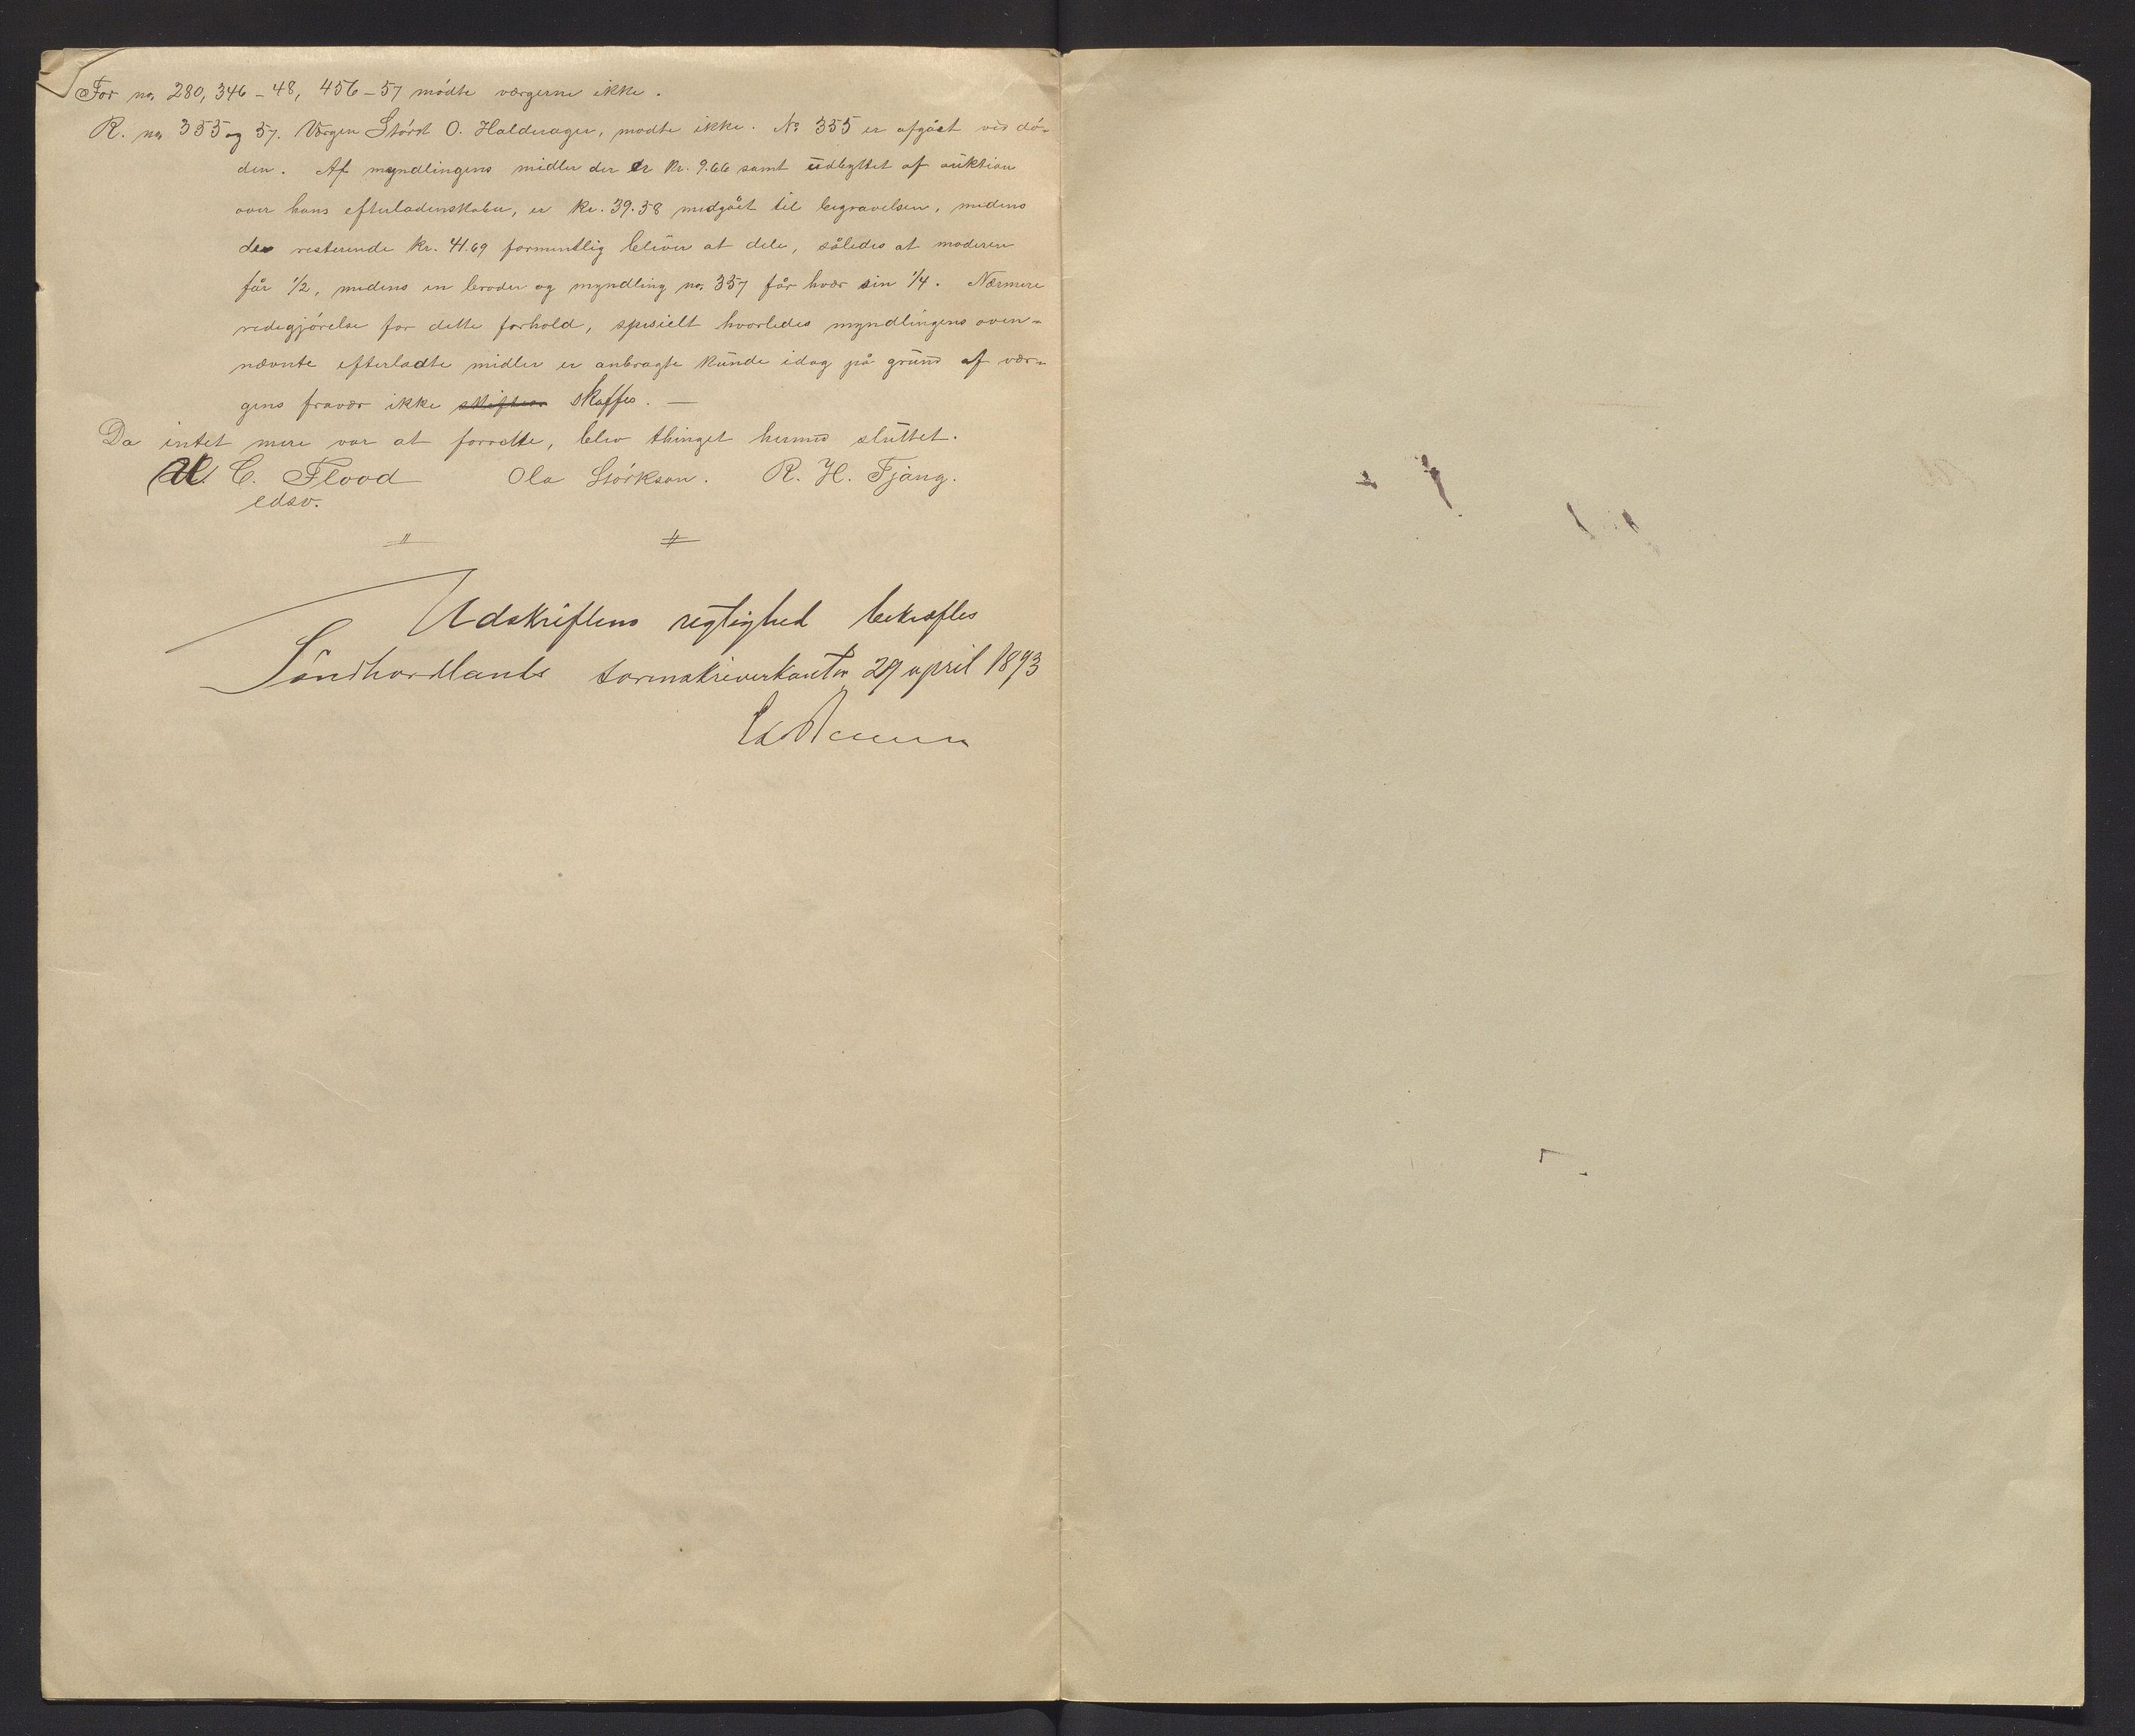 For no. 280, 346-48, 456-57 mödte værgerne ikke.
R. no. 355 og 57. Værgen Störk O. Haldorager, mødte ikke. No 355 er afgået ved dö-
den. Af myndlingens midler der er kr. 9.66 samt udbyttet af auktion
over hans efterladenskaber, er kr. 39.58 medgået til begravelsen, medens
de resterende kr. 41.69 formentlig bliver at dele, således at moderen
får 1/2, medens en broder og myndling no. 357 får hver sin 1/4. Nærmere
redegjörelse for dette forhold, specielt hvorledes myndlingens oven-
nævnte efterladte midler er anbragte kunde idag på grund af vær-
gens fravær ikke skaffes. —
Da intet mere var at forrette, blev thinget hermed sluttet.
C. Flood Ola Störkson. R. H. Tjäng.
edsv.
Udskriftens rigtighed bekræftes
Söndhordlands sorenskriverkontor 29 april 1893